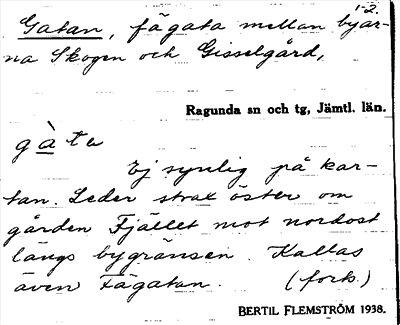 1-2.
Gatan, fägata mellan byar-
na Skogen och Gisselgård,
Ragunda sn och tg, Jämtl. län.
gàta
Ej synlig på kar-
tan. Leder strax öster om
gården Fjället mot nordost
längs bygränsen. Kallas
även Fägatan. (forts.)
BERTIL FLEMSTRÖM 1938.